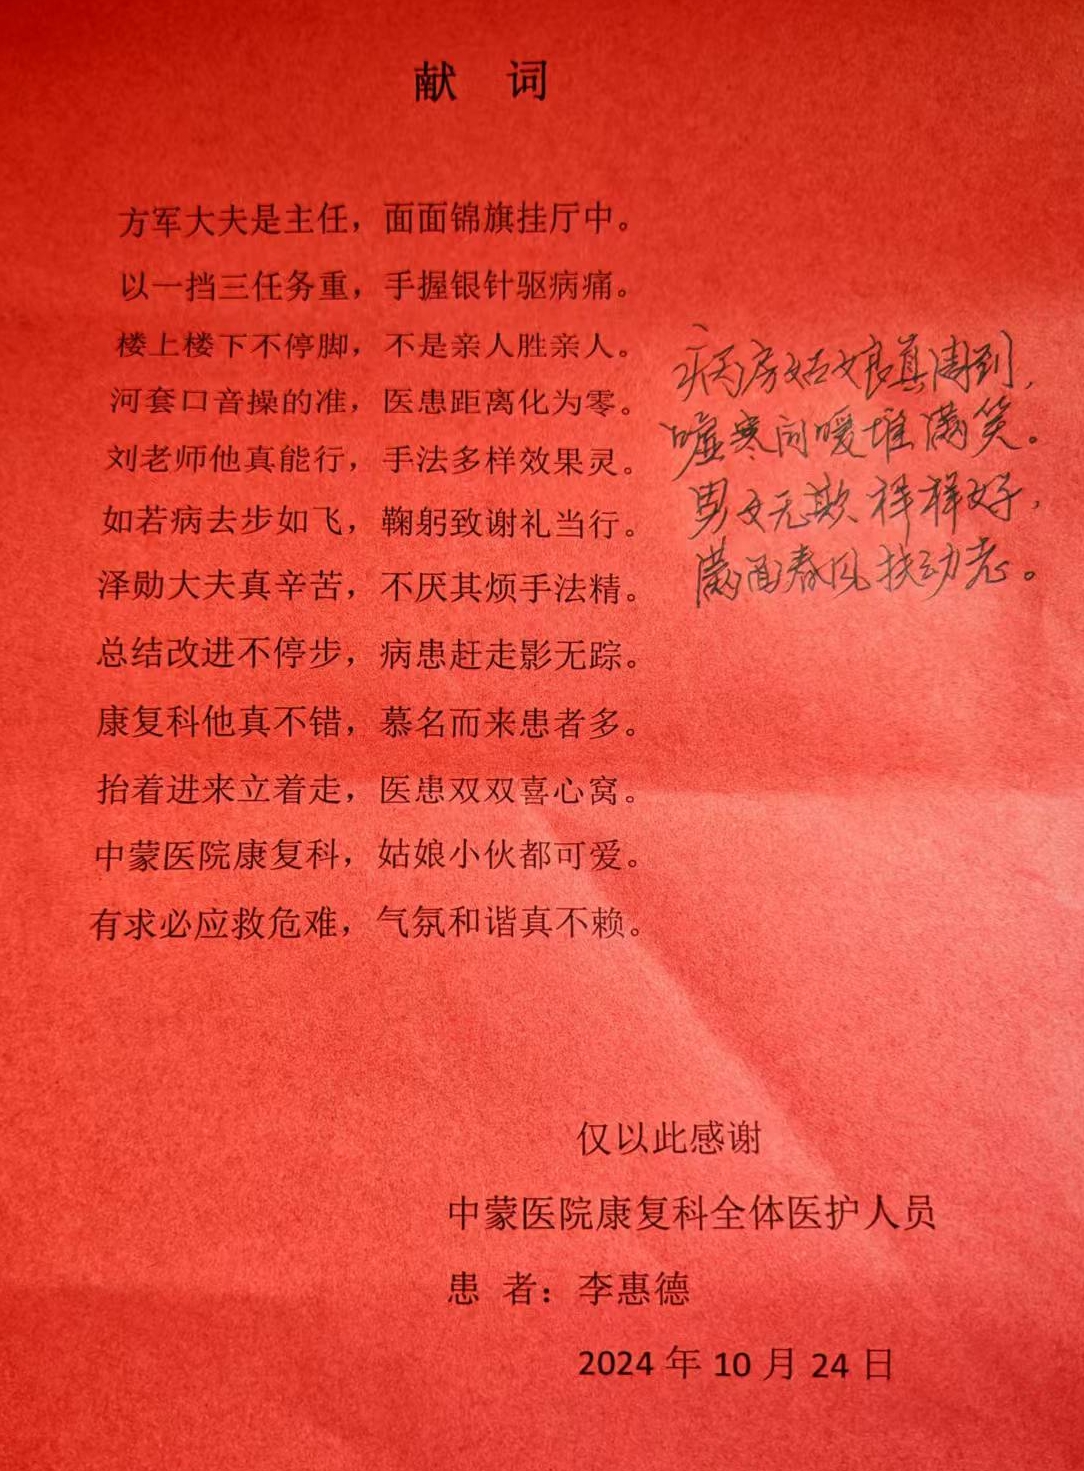 献 词
方军大夫是主任，面面锦旗挂厅中。
以一挡三任务重，手握银针驱病痛。
楼上楼下不停脚，不是亲人胜亲人。
河套口音操的准，医患距离化为零。
刘老师他真能行，手法多样效果灵。
如若病去步如飞，鞠躬致谢礼当行。
泽勋大夫真辛苦，不厌其烦手法精。
总结改进不停步，病患赶走影无踪。
康复科他真不错，慕名而来患者多。
抬着进来立着走，医患双双喜心窝。
中蒙医院康复科，姑娘小伙都可爱。
有求必应救危难，气氛和谐真不赖。
病房姑娘真周到，
嘘寒问暖堆满笑。
男女无欺样样好，
满面春风扶幼老。
仅以此感谢
中蒙医院康复科全体医护人员
患 者：李惠德
2024 年 10 月 24 日